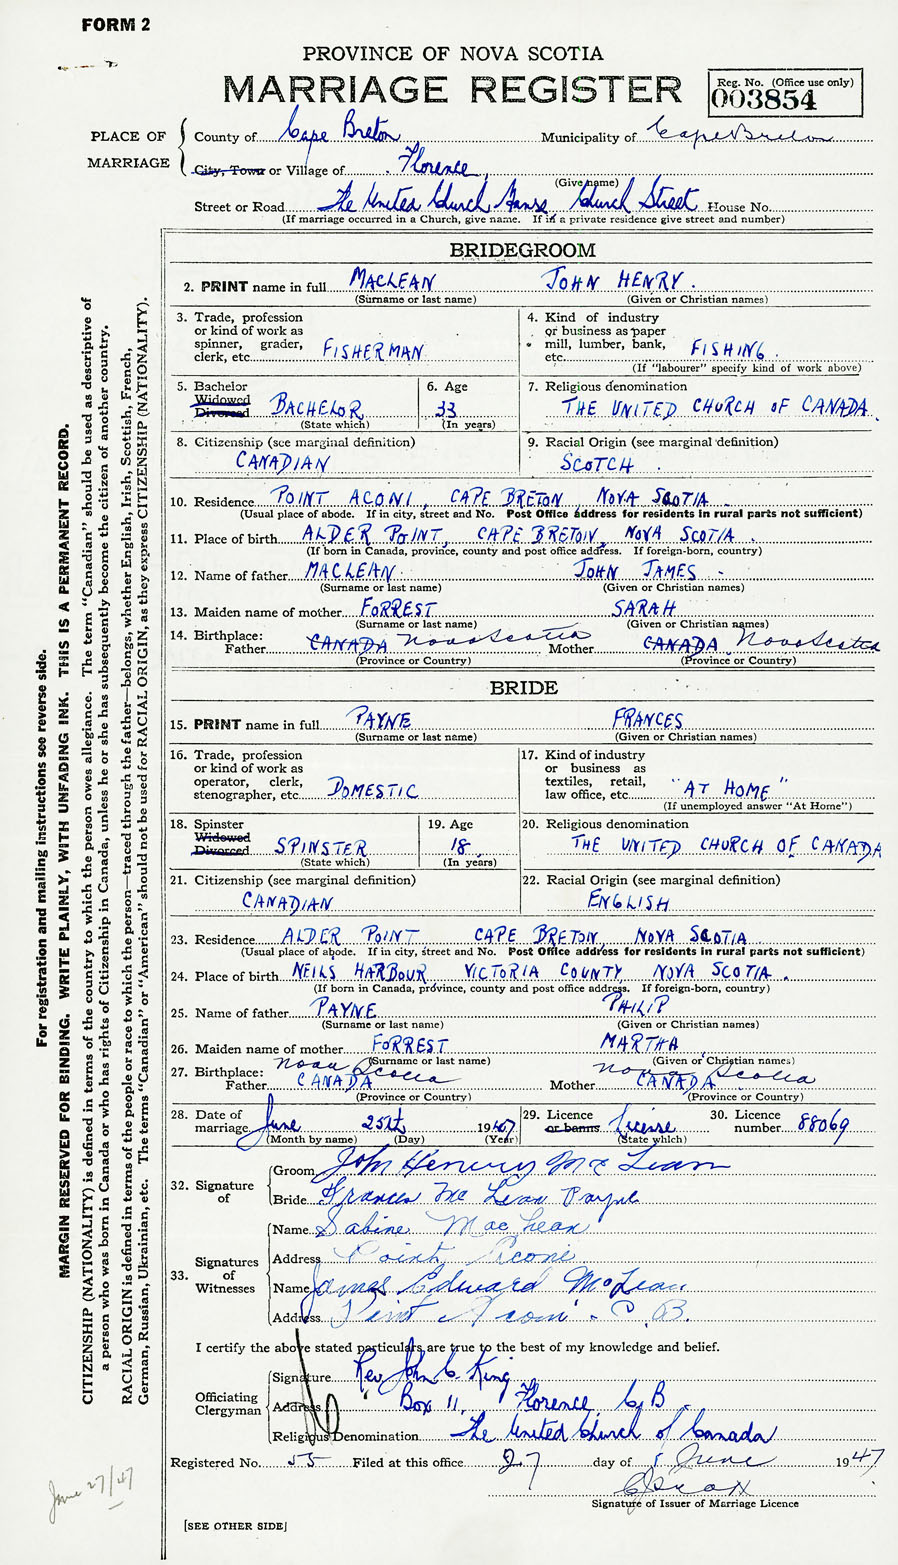 FORM 2
PROVINCE OF NOVA SCOTIA
MARRIAGE REGISTER
Reg. No. (Office use only)
003854
PLACE OF MARRIAGE
County of Cape Breton Municipality of Cape Breton
City, Town or Village of Florence
(Give name)
Street or Road The United Church Manse, Church Street House No.
(If marriage occurred in a Church, give name. If in a private residence give street and number)
BRIDEGROOM
2. PRINT name in full MACLEAN JOHN HENRY.
(Surname or last name) (Given or Christian names)
3. Trade, profession or kind of work as spinner, grader, clerk, etc. FISHERMAN
4. Kind of industry or business as paper mill, lumber, bank, etc. FISHING.
(If "labourer" specify kind of work above)
5. Bachelor Widowed Divorced BACHELOR
(State which)
6. Age 33
(In years)
7. Religious denomination
THE UNITED CHURCH OF CANADA.
8. Citizenship (see marginal definition)
CANADIAN
9. Racial Origin (see marginal definition)
SCOTCH.
10. Residence POINT ACONI, CAPE BRETON NOVA SCOTIA
(Usual place of abode. If in city, street and No. Post Office address for residents in rural parts not sufficient)
11. Place of birth ALDER POINT, CAPE BRETON, NOVA SCOTIA.
(If born in Canada, province, county and post office address. If foreign-born, country)
12. Name of father MACLEAN JOHN JAMES
(Surname or last name) (Given or Christian names)
13. Maiden name of mother FORREST SARAH
(Surname or last name) (Given or Christian names)
14. Birthplace:
Father CANADA Nova Scotia Mother CANADA Nova Scotia
(Province or Country) (Province or Country)
BRIDE
15. PRINT name in full PAYNE FRANCES
(Surname or last name) (Given or Christian names)
16. Trade, profession or kind of work as operator, clerk, stenographer, etc. DOMESTIC
17. Kind of industry or business as textiles, retail, law office, etc. "AT HOME"
(If unemployed answer "At Home")
18. Spinster Widowed Divorced SPINSTER
(State which)
19. Age 18
(In years)
20. Religious denomination
THE UNITED CHURCH OF CANADA
21. Citizenship (see marginal definition)
CANADIAN
22. Racial Origin (see marginal definition)
ENGLISH
23. Residence ALDER POINT CAPE BRETON, NOVA SCOTIA
(Usual place of abode. If in city, street and No. Post Office address for residents in rural parts not sufficient)
24. Place of birth NEILS HARBOUR VICTORIA COUNTY, NOVA SCOTIA.
(If born in Canada, province, county and post office address. If foreign-born, country)
25. Name of father PAYNE PHILIP
(Surname or last name) (Given or Christian names)
26. Maiden name of mother FORREST MARTHA
(Surname or last name) (Given or Christian names)
27. Birthplace: Nova Scotia Nova Scotia
Father CANADA Mother CANADA
(Province or Country) (Province or Country)
28. Date of marriage June 25th 1947
(Month by name) (Day) (Year)
29. Licence or banns License
(State which)
30. Licence number 88069
32. Signature of
Groom John Henery McLean
Bride Frances Mc Lean Payne
33. Signatures of Witnesses
Name Sabine MacLean
Address Point Acone
Name James Edward McLean
Address Point Aconi C.B.
I certify the above stated particulars are true to the best of my knowledge and belief.
Officiating Clergyman
Signature Rev. John C. King
Address Box 11, Florence, C.B.
Religious Denomination The United Church of Canada
Registered No. 55 Filed at this office 27 day of June 1947
Signature of Issuer of Marriage Licence
[SEE OTHER SIDE]
June 27/47
For registration and mailing instructions see reverse side.
MARGIN RESERVED FOR BINDING. WRITE PLAINLY, WITH UNFADING INK. THIS IS A PERMANENT RECORD.
CITIZENSHIP (NATIONALITY) is defined in terms of the country to which the person owes allegiance. The term "Canadian" should be used as descriptive of
a person who was born in Canada or who has rights of Citizenship in Canada, unless he or she has subsequently become the citizen of another country.
RACIAL ORIGIN is defined in terms of the people or race to which the person—traced through the father—belongs, whether English, Irish, Scottish, French,
German, Russian, Ukrainian, etc. The terms "Canadian" or "American" should not be used for RACIAL ORIGIN, as they express CITIZENSHIP (NATIONALITY).